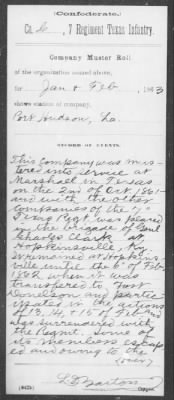 (Confederate.)
Co. , 7 Regiment Texas Infantry.
Company Muster Roll
of the organization named above,
for Jan & Feb , 1863
shows station of company,
Port Hudson, La.
RECORD OF EVENTS.
This company was mus-
tered into service at
Marshall in Texas
on the 2nd of Oct 1861
and with the other
companies of the 7"
Texas Regt was placed
in the brigade of Genl
Charles Clark at
Hopkinsville, Ky
remained at Hopkins-
ville until the of Feb
1862 when it was
transfered to Fort
Donelson and partic-
ipated in the actions
of 13, 14, & 15 of Feb and
was surrendered with
the Regmt. Some of
its members escap-
ed and owing to the
(over)
Copyist.